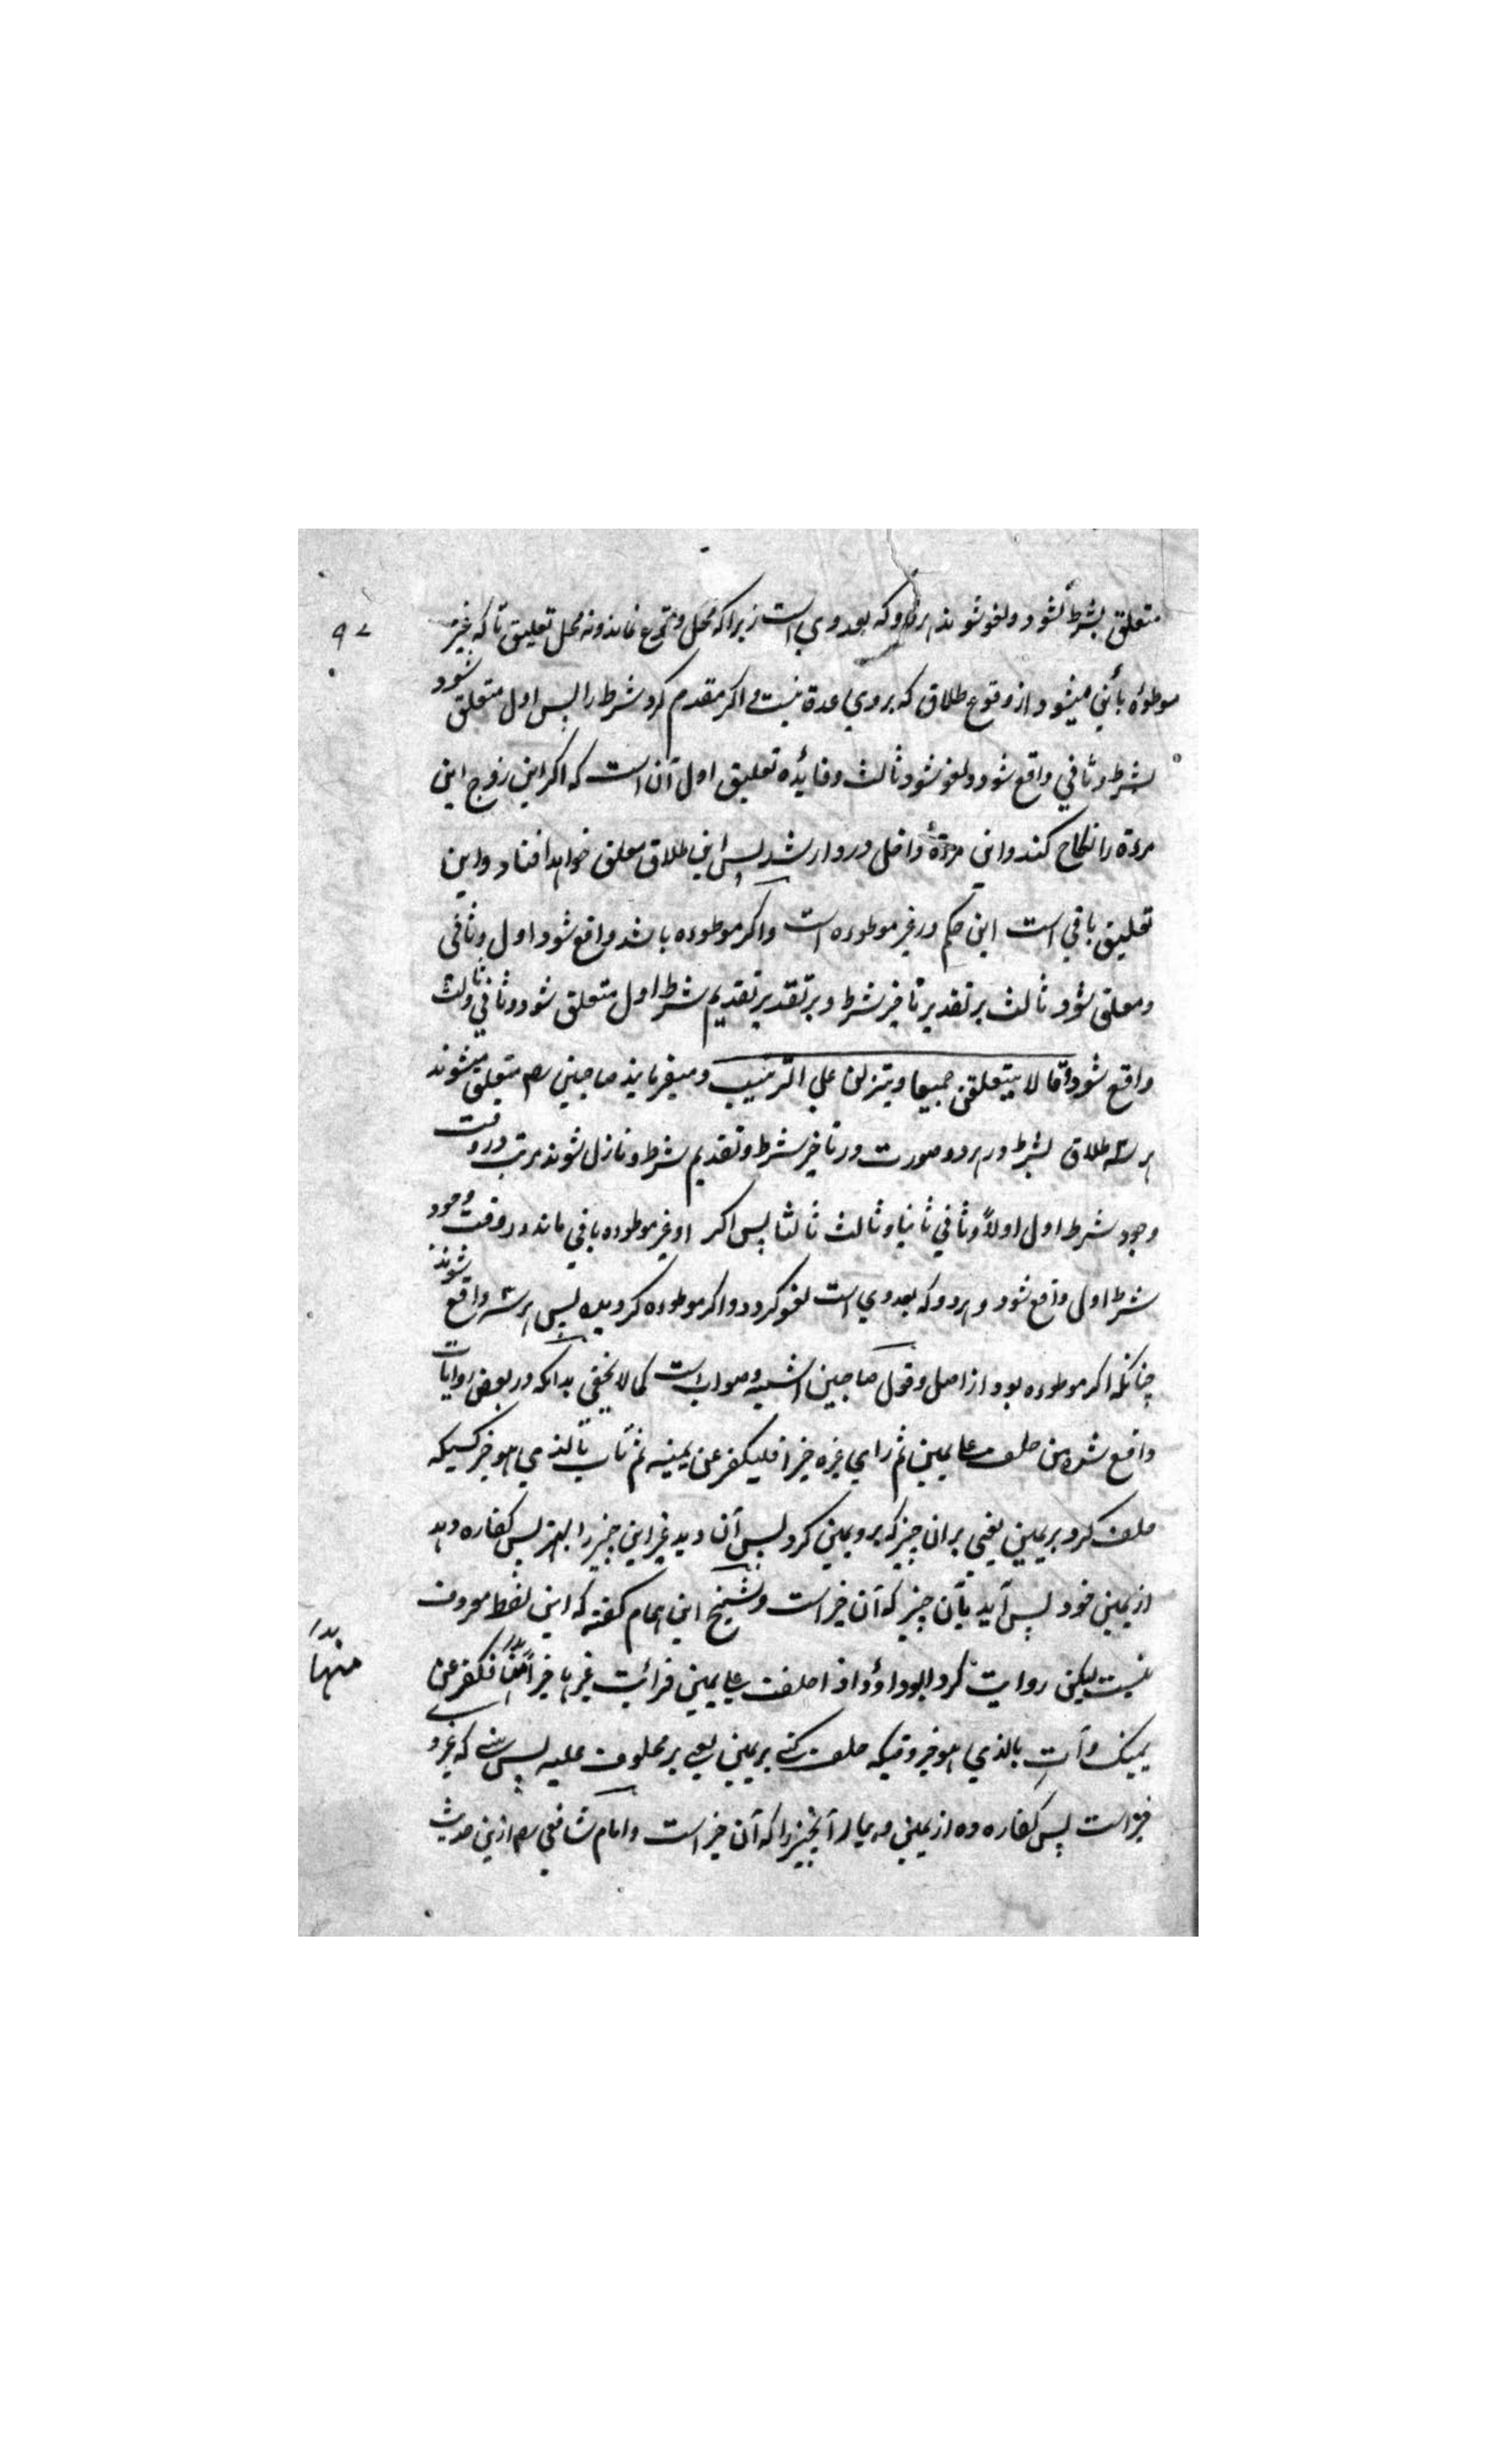 متعلق بشرط نشود و لغو شوند هر دو که بعد وی است زیرا که محل وقوع نماند و نه محل تعلیق تا که غیر
موطؤه بائن میشود از وقوع طلاق که بروی عدة نیست و اکر مقدم کرد شرط را پس اول متعلق شود
بشرط و ثانی واقع شود و لغو شود ثالث و فائده تعلیق اول آن است که اکر این زوج این
مرءة را نکاح کند و این مرءة داخل در دار شد پس این طلاق معلق خواهد افتاد و این
تعلیق باقی است این حکم در غیر موطوءه است و اکر موطوءه باشد واقع شود اول و ثانی
و معلق شود ثالث بر تقدیر تاخیر شرط و بر تقدیر تقدیم شرط اول متعلق شود و ثانی و ثالث
واقع شود و قالا یتعلقن جمیعا و ینزلن علی الترتیب و میفرمایند صاحبین رحم متعلق میشوند
هر سه طلاق بشرط در هر دو صورت در تاخیر شرط و تقدیم شرط و نازل شوند مرتب در وقت
وجود شرط اول اولاً و ثانی ثانیا و ثالث ثالثا پس اکر او غیر موطوءه باقی ماند در وقت وجود
شرط اولی واقع شود و هر دو که بعد وی است لغو کردد و اکر موطوءه کردیده پس هر سه واقع شوند
چنانکه اکر موطوءه بود از اصل و قول صاحبین اشبه و صواب است کما لا یخفی بدانکه در بعض روایات
واقع شده من حلف علی یمین ثم رای غیره خیرا فلیکفر عن یمینه ثم یأت بالذی هو خیر کسیکه
حلف کرد بر یمین یعنی بران چیز که برو یمین کرد پس آن دید غیر این چیز را بهتر پس کفاره دهد
از یمین خود پس آید بآن چیز که آن خیر است و شیخ ابن الهمام کفته که این لفظ معروف
نیست لیکن روایت کرد ابو داؤد اذا حلفت علی یمین فرأیت غیرها خیرا منها فکفر عن
منها بدل
یمینک وأت بالذی هو خیر وقتیکه حلف کنی بر یمین یعنی بر محلوف علیه پس بینی که غیر او
خیر است پس کفاره ده از یمین و بیار آنچیز را که آن خیر است و امام شافعی رحم ازین حدیث